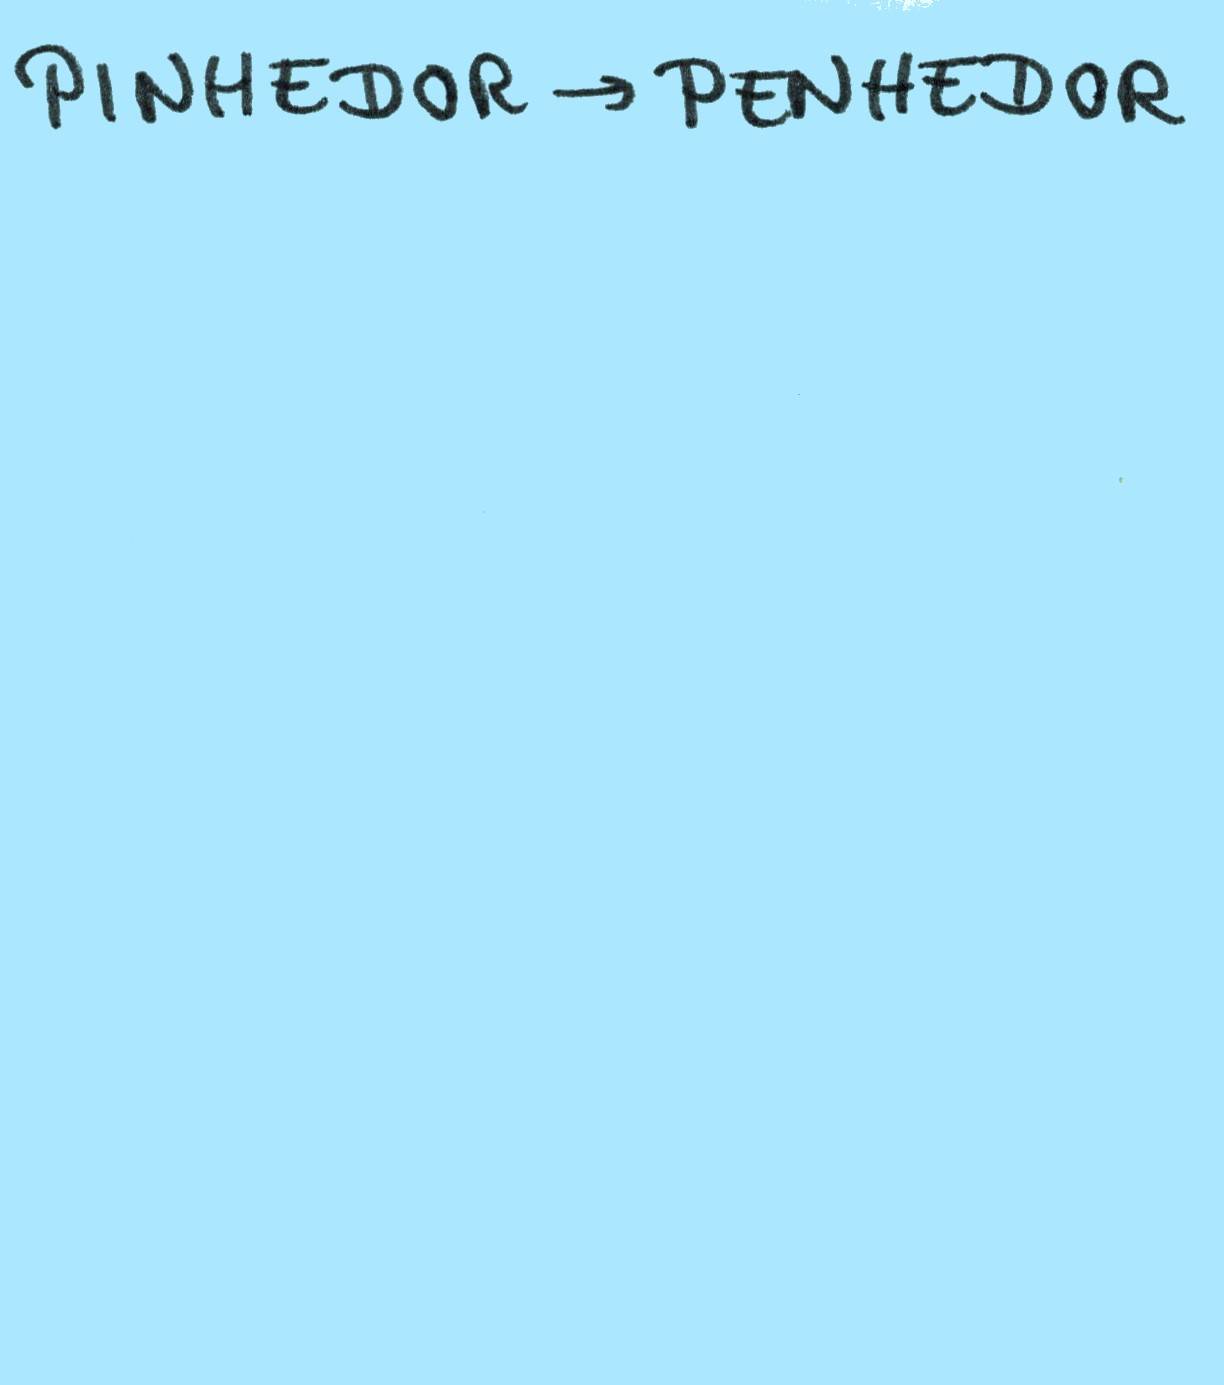 PINHEDOR → PENHEDOR